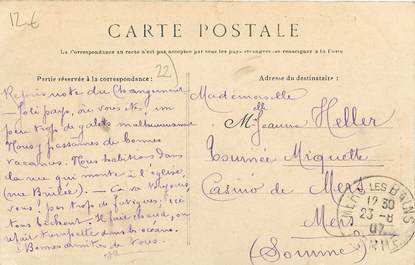 12€
CARTE POSTALE
La Correspondance au recto n'est pas acceptée par tous les pays étrangers se renseigner à la Poste
Partie réservée à la correspondance:
Adresse du destinataire:
22
note du
Joli pays, où vous êtes, un
peu trop de galets malheureusement
Nous y passames de bonnes
vacances. Nous habitions dans
la rue qui monte à l'église,
(rue Brûlée). — Ça va toujours,
vous! pas trop de fatigues; ici
tous bûchent. Il fait chaud, on
dans les
Bonnes amitiés de tous.
Mademoiselle
Jeanne Heller
Tournée Miquette
Casino de Mers
Mers
(Somme)
LES BAINS
12 30
23-8
07